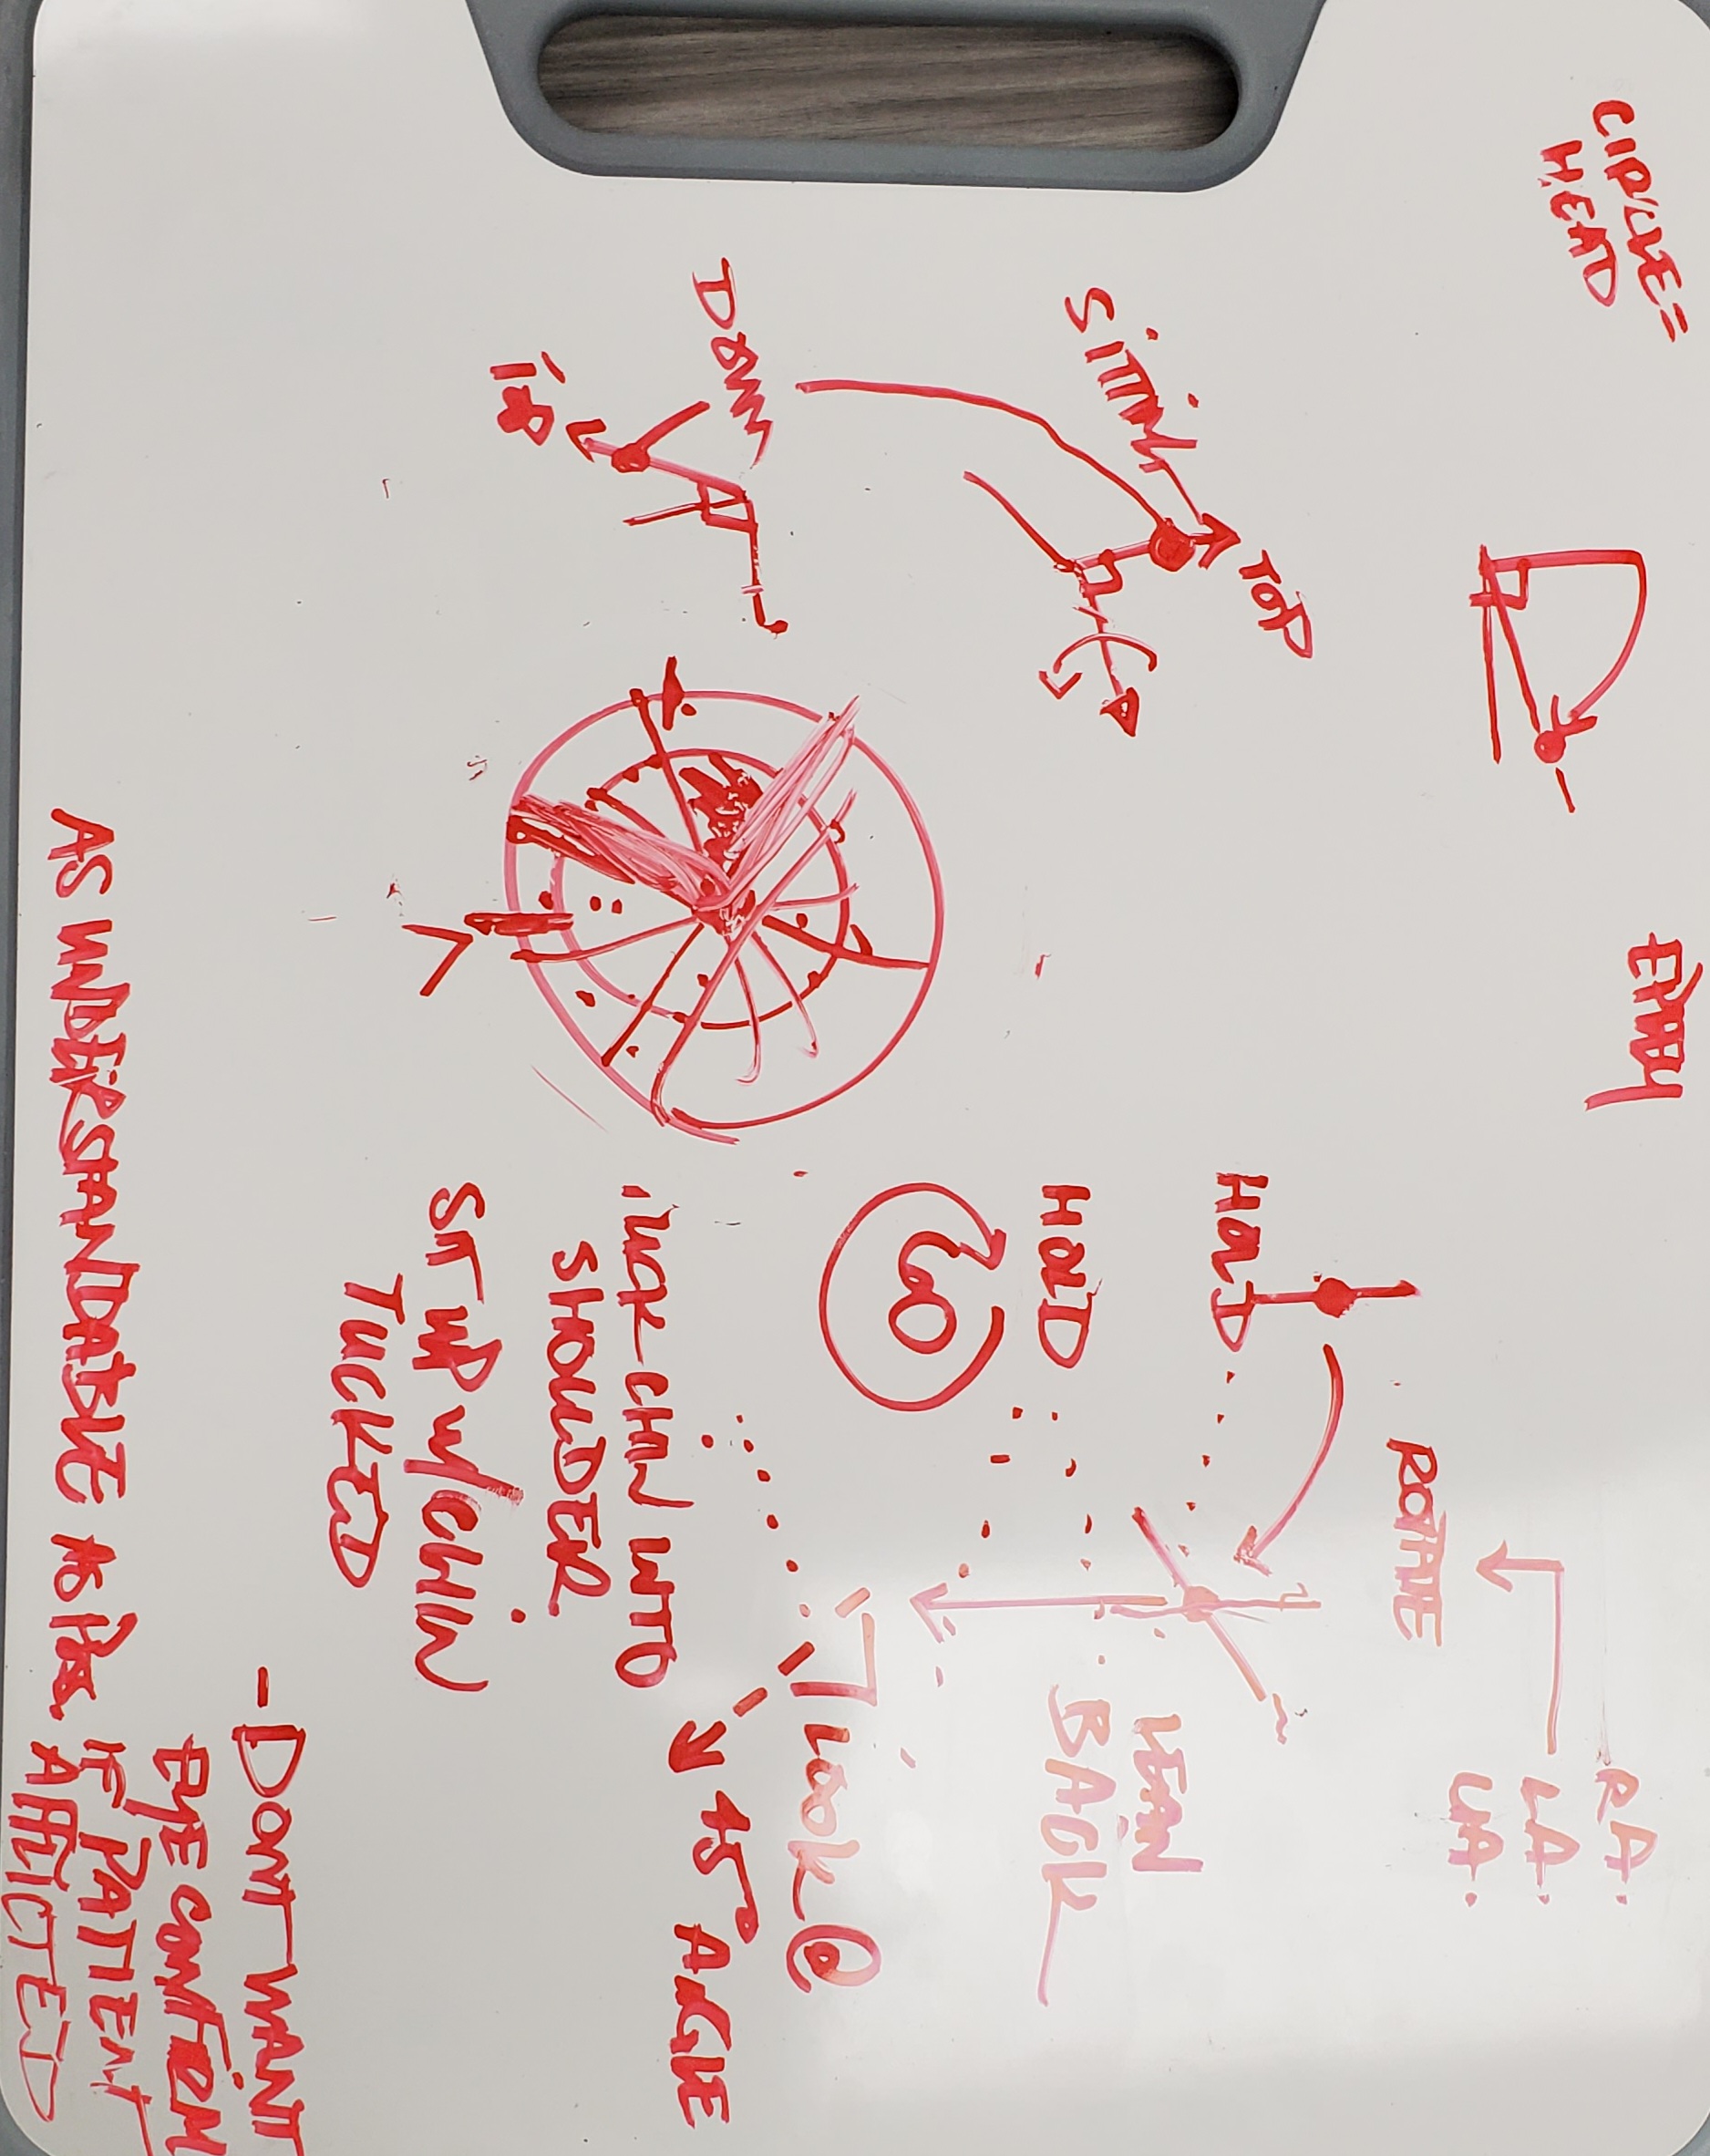 CIRCLE=
HEAD
EPLEY
RA.
LA.
UA.
ROTATE
TOP
SITTING
HOLD
LEAN
BACK
HOLD
60
LOOK @
45° ANGLE
DOWN
TUCK CHIN INTO
SHOULDER
SIT UP W/CHIN
TUCKED
- DONT WANT
EYE CONFIRM
IF PATIENT
AFFLICTED
AS UNDERSTANDABLE AS POSS.